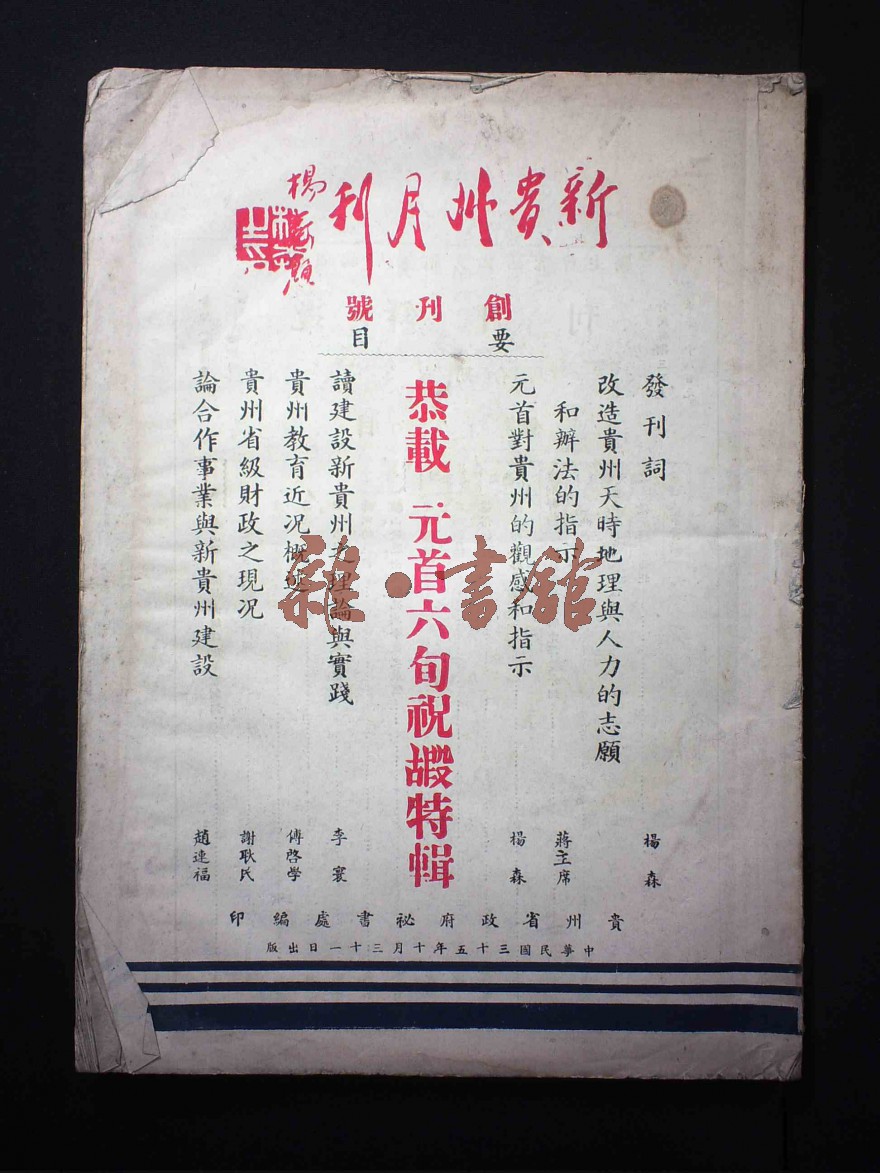 新貴州月刊
楊森題
創刊號
要目
發刊詞 楊森
改造貴州天時地理與人力的志願
和辦法的指示 蔣主席
元首對貴州的觀感和指示 楊森
恭載 元首六旬祝嘏特輯
讀建設新貴州之理論與實踐 李寰
貴州教育近況概述 傅啓學
貴州省級財政之現況 謝耿民
論合作事業與新貴州建設 趙連福
貴州省政府祕書處編印
中華民國三十五年十月三十一日出版
雜·書館